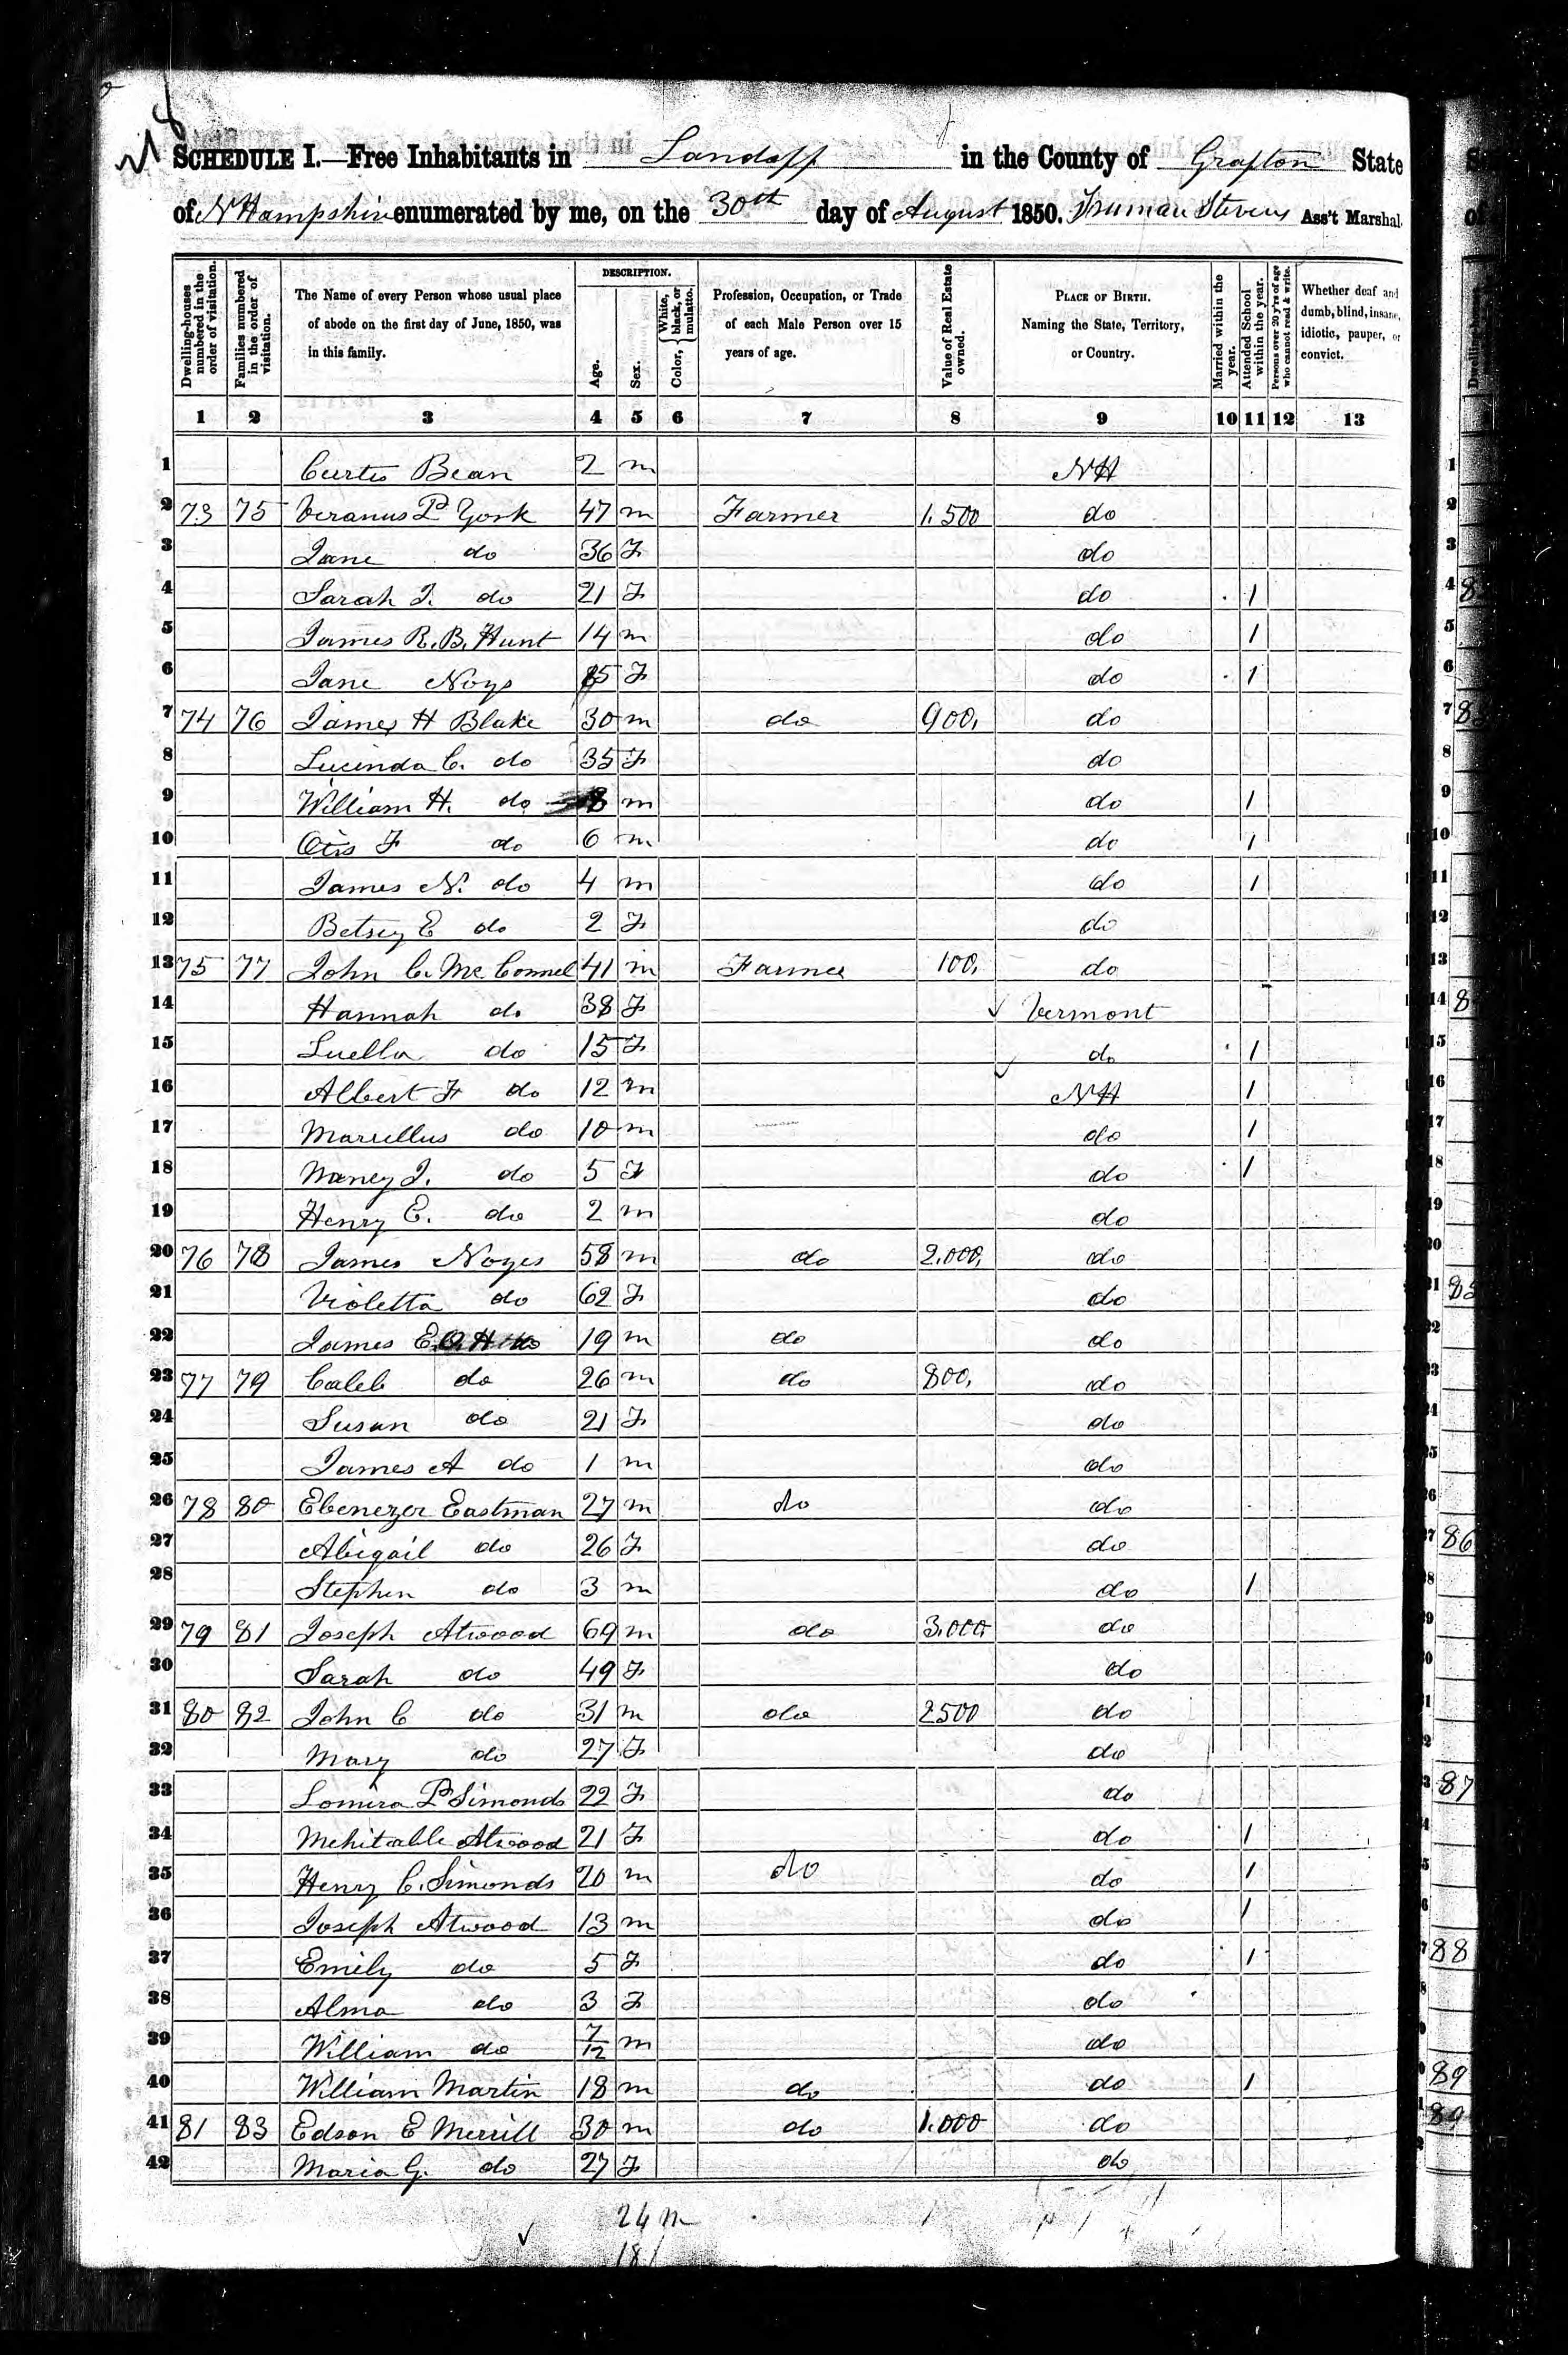 SCHEDULE I.—Free Inhabitants in Landaff in the County of Grafton State
of N Hampshire enumerated by me, on the 30th day of August 1850. Truman Stevens Ass't Marshal.
Dwelling-houses numbered in the order of visitation.
Families numbered in the order of visitation.
The Name of every Person whose usual place of abode on the first day of June, 1850, was in this family.
DESCRIPTION.
Age.
Sex.
Color, { White, black, or mulatto.
Profession, Occupation, or Trade of each Male Person over 15 years of age.
Value of Real Estate owned.
PLACE OF BIRTH. Naming the State, Territory, or Country.
Married within the year.
Attended School within the year.
Persons over 20 y'rs of age who cannot read & write.
Whether deaf and dumb, blind, insane, idiotic, pauper, or convict.
1 2 3 4 5 6 7 8 9 10 11 12 13
1 Curtis Bean 2 m NH
2 73 75 Veranus P York 47 m Farmer 1.500 do
3 Jane do 36 F do
4 Sarah J. do 21 F do 1
5 James R. B. Hunt 14 m do 1
6 Jane Noys 15 F do 1
7 74 76 James H Blake 30 m do 900, do
8 Lucinda C. do 35 F do
9 William H. do 8 m do 1
10 Otis F do 6 m do 1
11 James N. do 4 m do 1
12 Betsey E do 2 F do
13 75 77 John C. Mc Connel 41 m Farmer 100, do
14 Hannah do 38 F Vermont
15 Luella do 15 F do 1
16 Albert F do 12 m NH 1
17 Marcellus do 10 m do 1
18 Nancy J. do 5 F do 1
19 Henry E. do 2 m do
20 76 78 James Noyes 58 m do 2.000, do
21 Violetta do 62 F do
22 James E. O. H do 19 m do do
23 77 79 Caleb do 26 m do 800, do
24 Susan do 21 F do
25 James A do 1 m do
26 78 80 Ebenezer Eastman 27 m do do
27 Abigail do 26 F do
28 Stephen do 3 m do 1
29 79 81 Joseph Atwood 69 m do 3.000 do
30 Sarah do 49 F do
31 80 82 John C do 31 m do 2500 do
32 Mary do 27 F do
33 Lomira P Simonds 22 F do
34 Mehitable Atwood 21 F do 1
35 Henry C. Simonds 20 m do do 1
36 Joseph Atwood 13 m do 1
37 Emily do 5 F do 1
38 Alma do 3 F do
39 William do 7/12 m do
40 William Martin 18 m do do 1
41 81 83 Edson E Merrill 30 m do 1.000 do
42 Maria G. do 27 F do
24 m
18
86
87
88
89